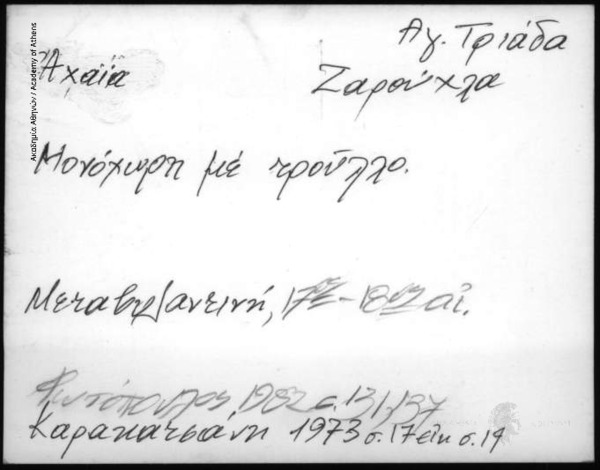 Ακαδημία Αθηνών / Academy of Athens
Αγ. Τριάδα
Ἀχαΐα Ζαρούχλα
Μονόχωρη μέ τροῦλλο.
Μεταβυζαντινή, 17ος - 18ος αἰ.
Φωτόπουλος 1982 σ. 131, 137
Καρακατσάνη 1973 σ. 17 εἰκ σ. 19